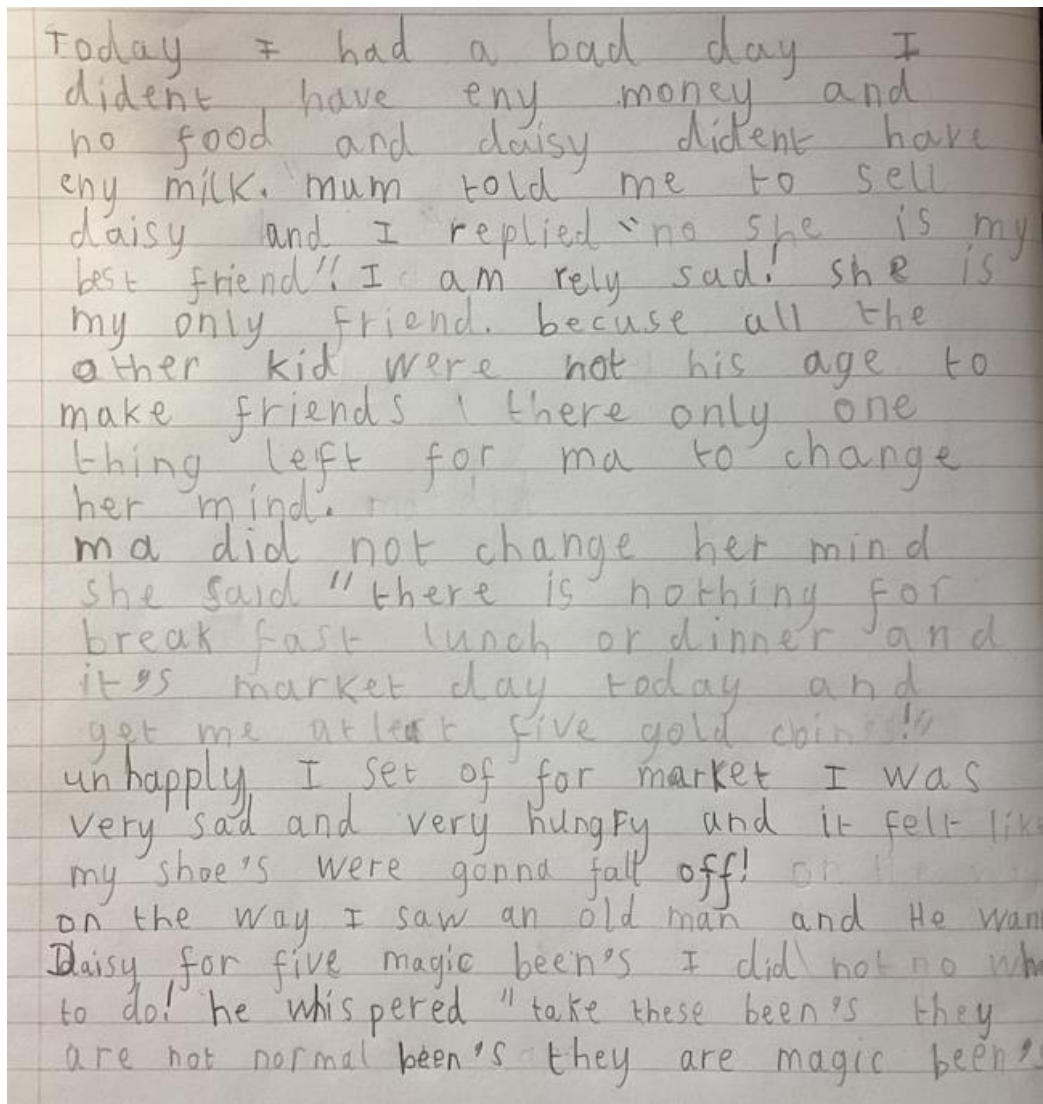 Today I had a bad day I
dident have eny money and
no food and daisy dident have
eny milk. mum told me to sell
daisy and I replied "no she is my
best friend"! I am rely sad! she is
my only friend. becuse all the
ather kid were not his age to
make friends there only one
thing left for ma to change
her mind.
ma did not change her mind
she said "there is nothing for
break fast lunch or dinner and
it's market day today and
get me at least five gold coins!"
unhapply I set of for market I was
very sad and very hungry and it felt like
my shoe's were gonna fall off!
on the way I saw an old man and He wan
Daisy for five magic been's I did not no wh
to do! he whispered "take these been's they
are not normal been's they are magic been's